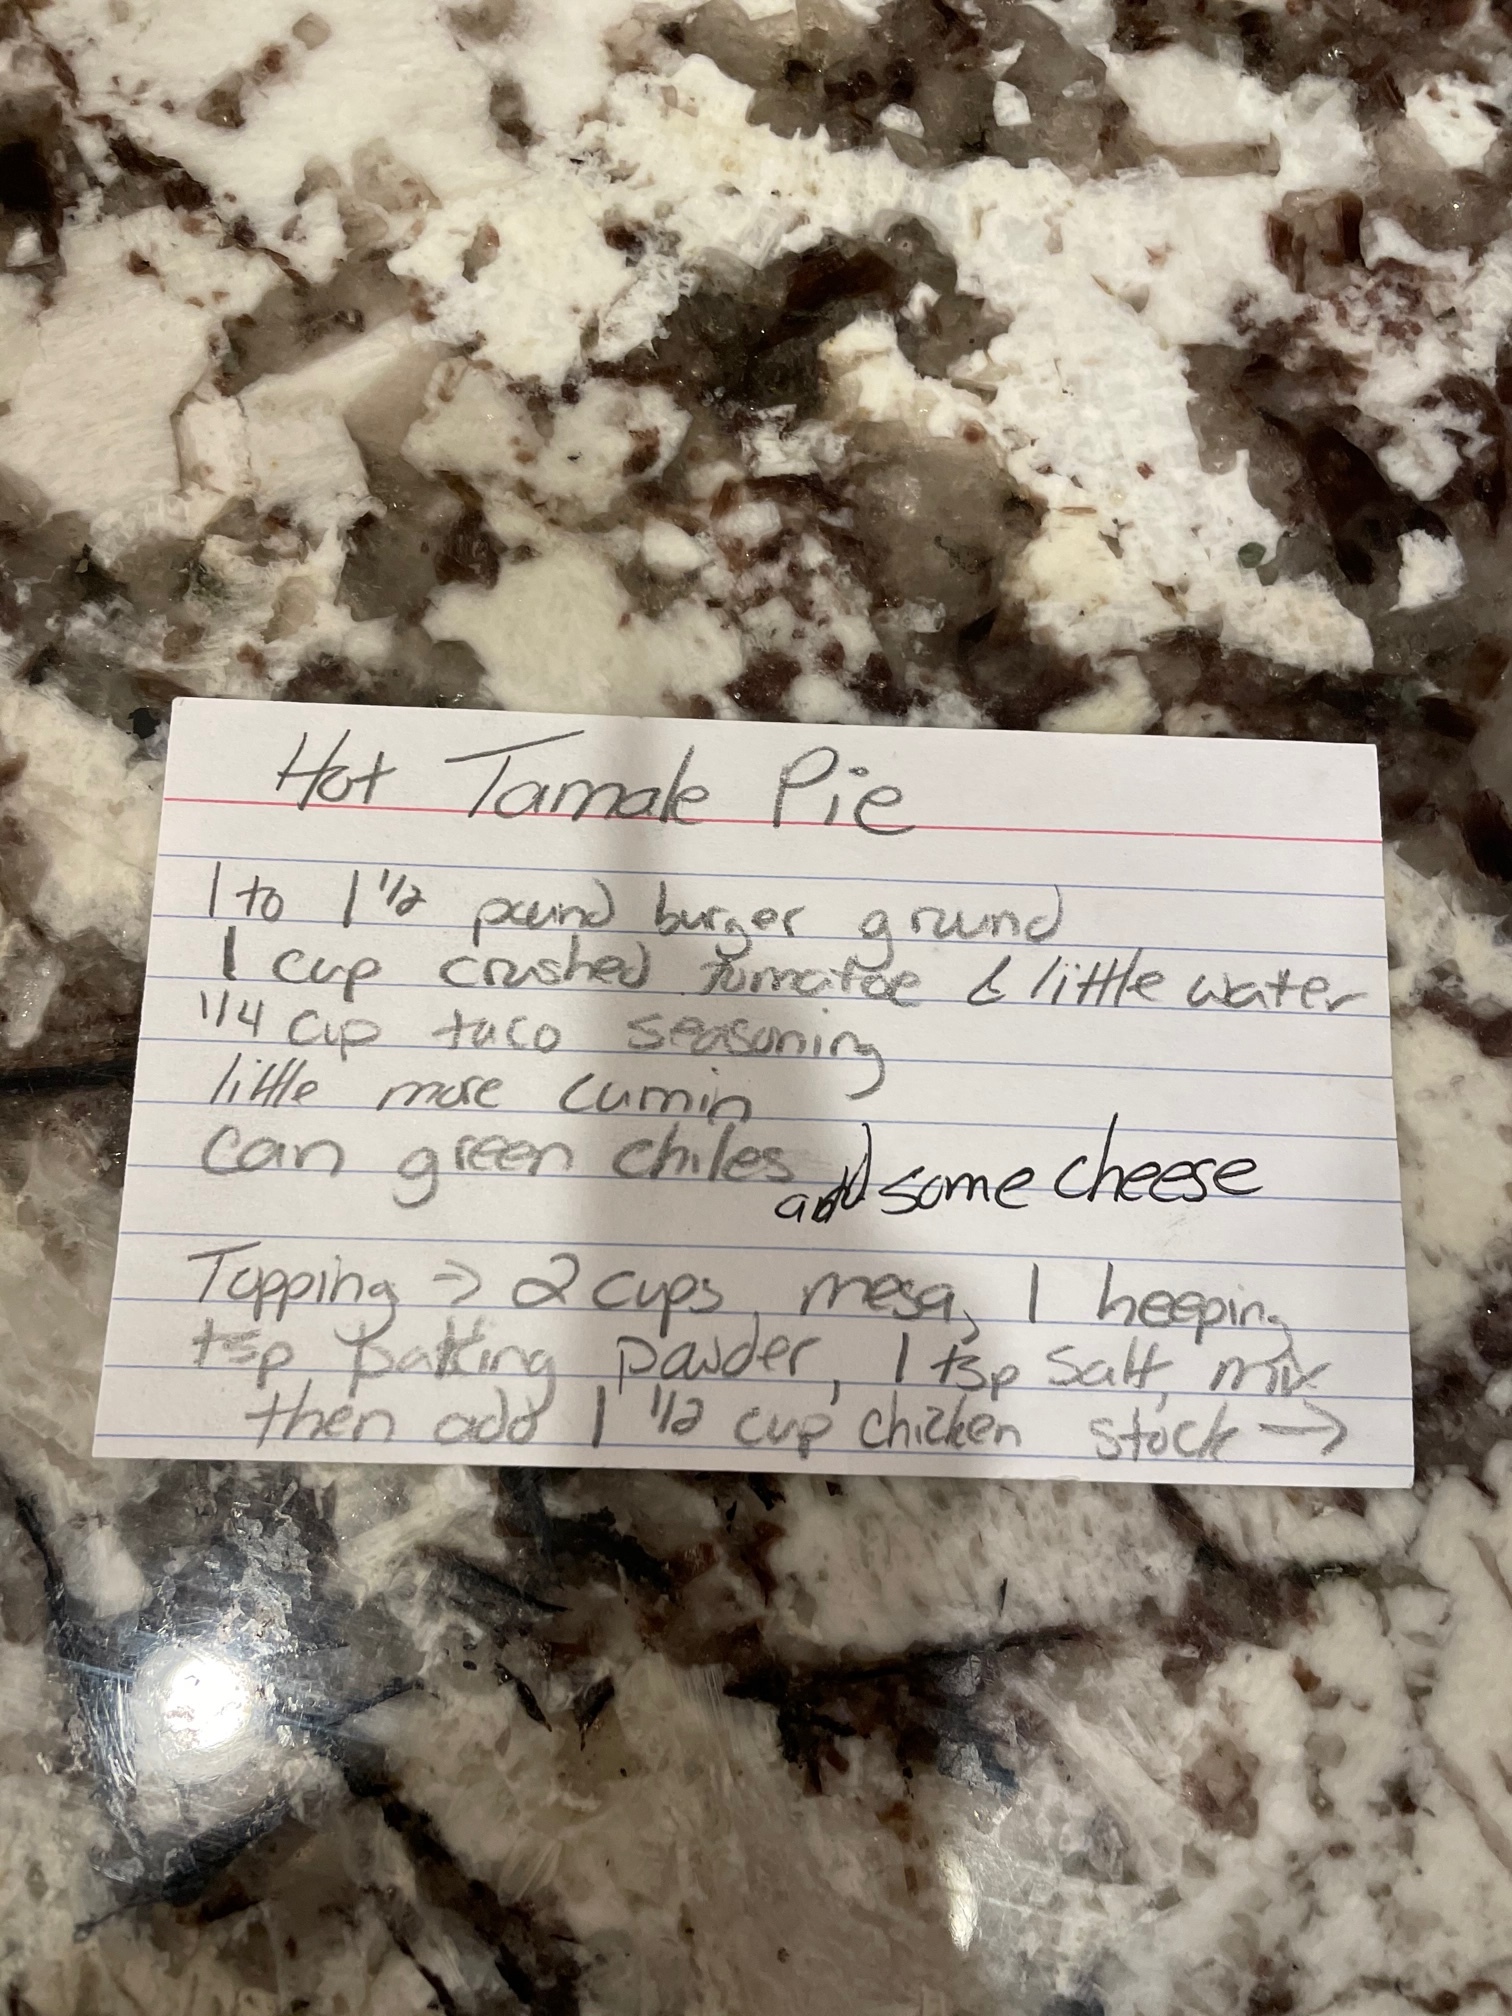 Hot Tamale Pie
1 to 1 1/2 pound burger ground
1 cup crushed tumatoe & little water
1/4 cup taco seasoning
little more cumin
can green chiles add some cheese
Topping → 2 cups, mesa, 1 heeping
tsp bakking powder, 1 tsp salt, mix
then add 1 1/2 cup chicken stock →